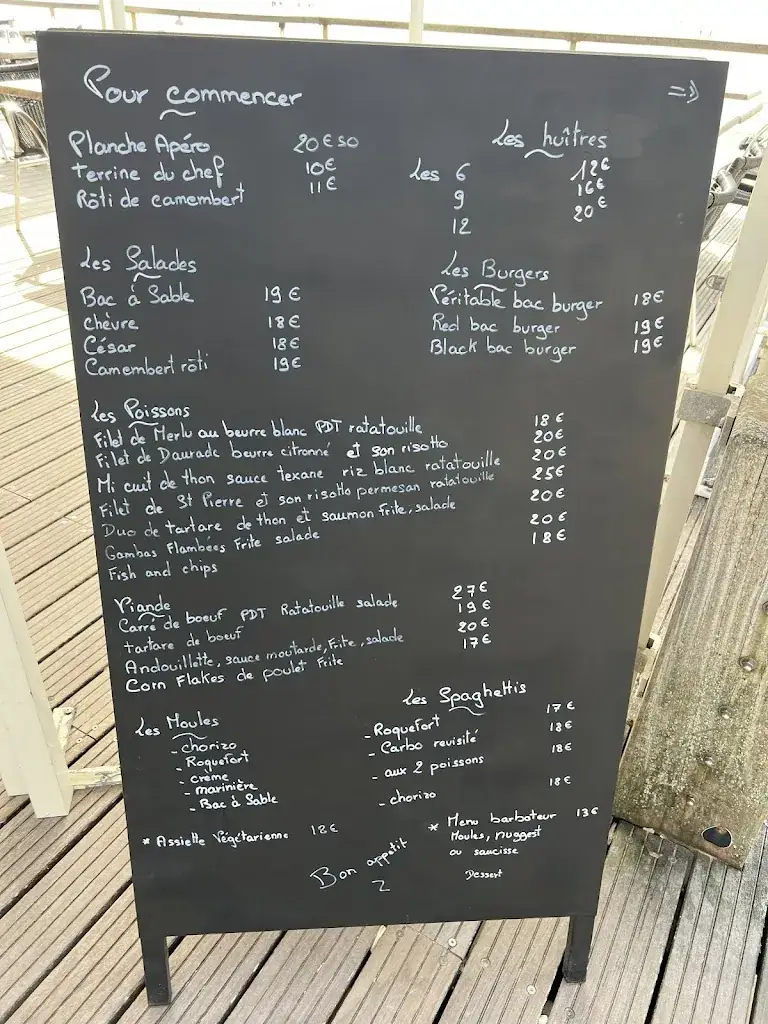 Pour commencer
=>
Planche Apéro 20€50
terrine du chef 10€
Rôti de camembert 11€
Les huîtres
Les 6 12€
9 16€
12 20€
Les Salades
Bac à Sable 19€
chèvre 18€
César 18€
Camembert rôti 19€
Les Burgers
Véritable bac burger 18€
Red bac burger 19€
Black bac burger 19€
Les Poissons
Filet de Merlu au beurre blanc PDT ratatouille 18€
Filet de Daurade beurre citronné et son risotto 20€
Mi cuit de thon sauce texane riz blanc ratatouille 20€
Filet de St Pierre et son risotto permesan ratatouille 25€
Duo de tartare de thon et saumon frite, salade 20€
Gambas Flambées Frite salade 20€
Fish and chips 18€
Viande
Carré de boeuf PDT Ratatouille salade 27€
tartare de boeuf 19€
Andouillette, sauce moutarde, Frite, salade 20€
Corn Flakes de poulet Frite 17€
Les Moules
- chorizo
- Roquefort
- crème
- marinière
- Bac à Sable
Les Spaghettis
- Roquefort 17€
- Carbo revisité 18€
- aux 2 poissons 18€
- chorizo 18€
* Assiette Végétarienne 18€
* Menu barboteur 13€
Moules, nuggest
ou saucisse
Dessert
Bon appetit